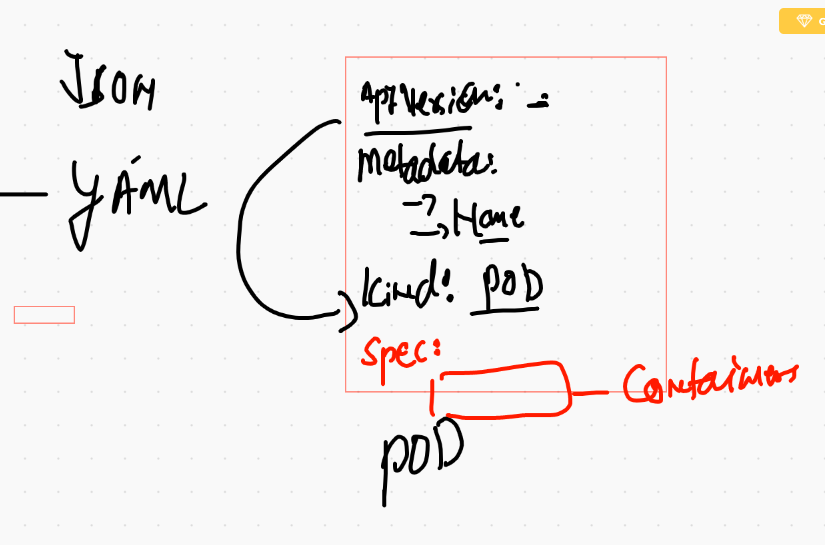 JSON
YAML
ApiVersion: =
Metadata:
Name
Kind: POD
Spec:
Containers
POD